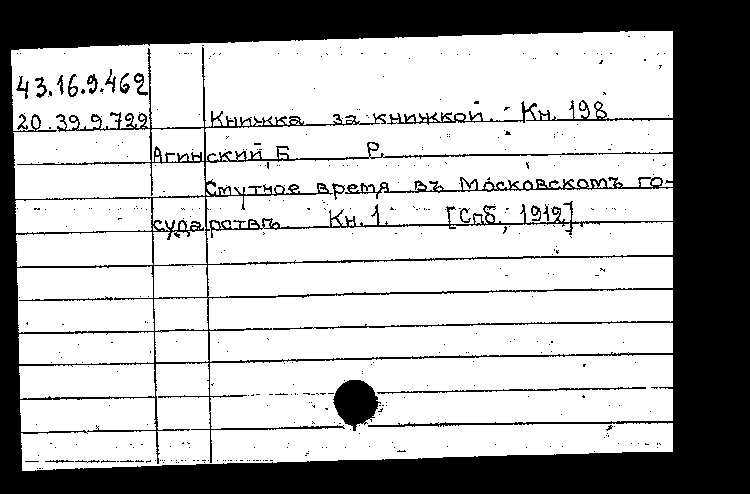 43.16.9.462
20.39.9.729 Книжка за книжкой. Кн. 198
Агинский, Б Р.
Смутное время въ Московскомъ го-
сударствѣ Кн. 1. [Спб., 1912].